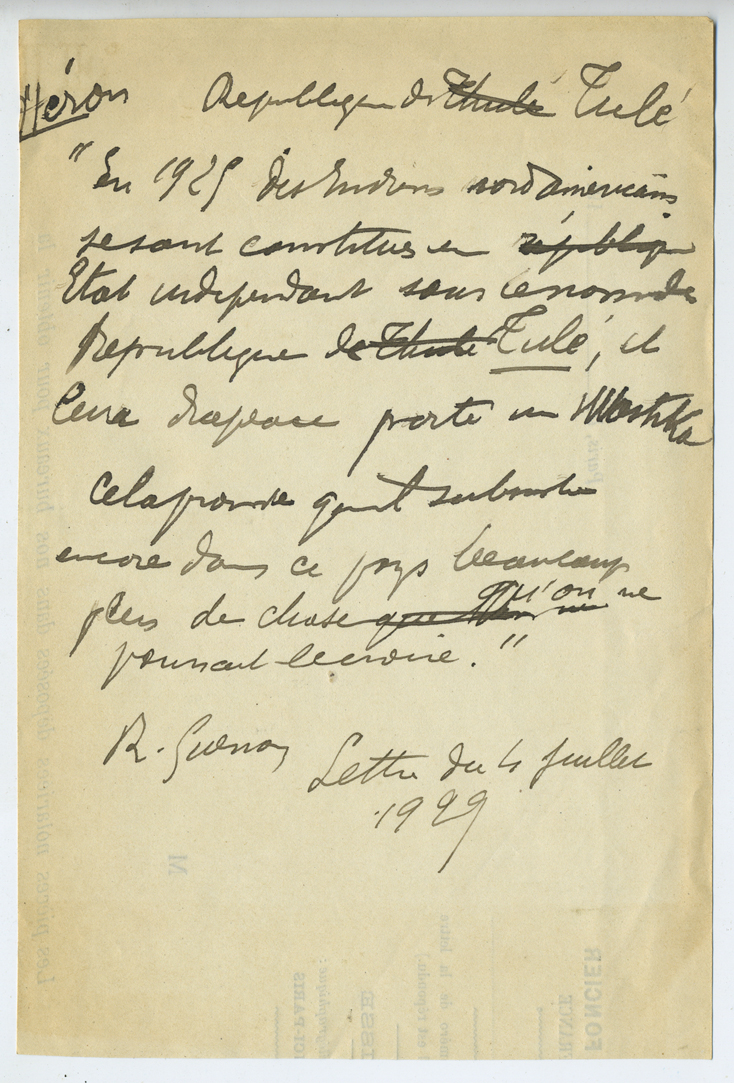 Héron République de Thulé Tulé
"En 1925 des Indiens nord américains
se sont constitués en républiq
Etat indépendant sous le nom de
République de Thulé Tulé, et
leur drapeau porte un swastika
cela prouve qu'il subsiste
encore dans ce pays beaucoup
plus de chose que qu'on ne
pourrait le croire."
R. Guénon Lettre du 4 Juillet
1929
Les pièces notariées déposées dans nos bureaux pour
Paris,
M
FONCIER